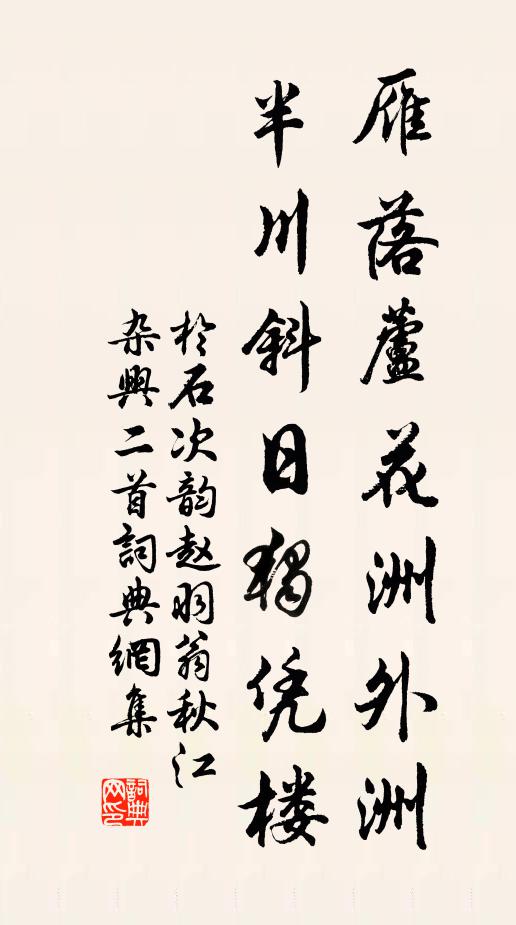 雁落蘆花洲外洲
半川斜日獨凭楼
於石次韵赵羽翁秋江
杂興二首詞典網集
詞典
网印